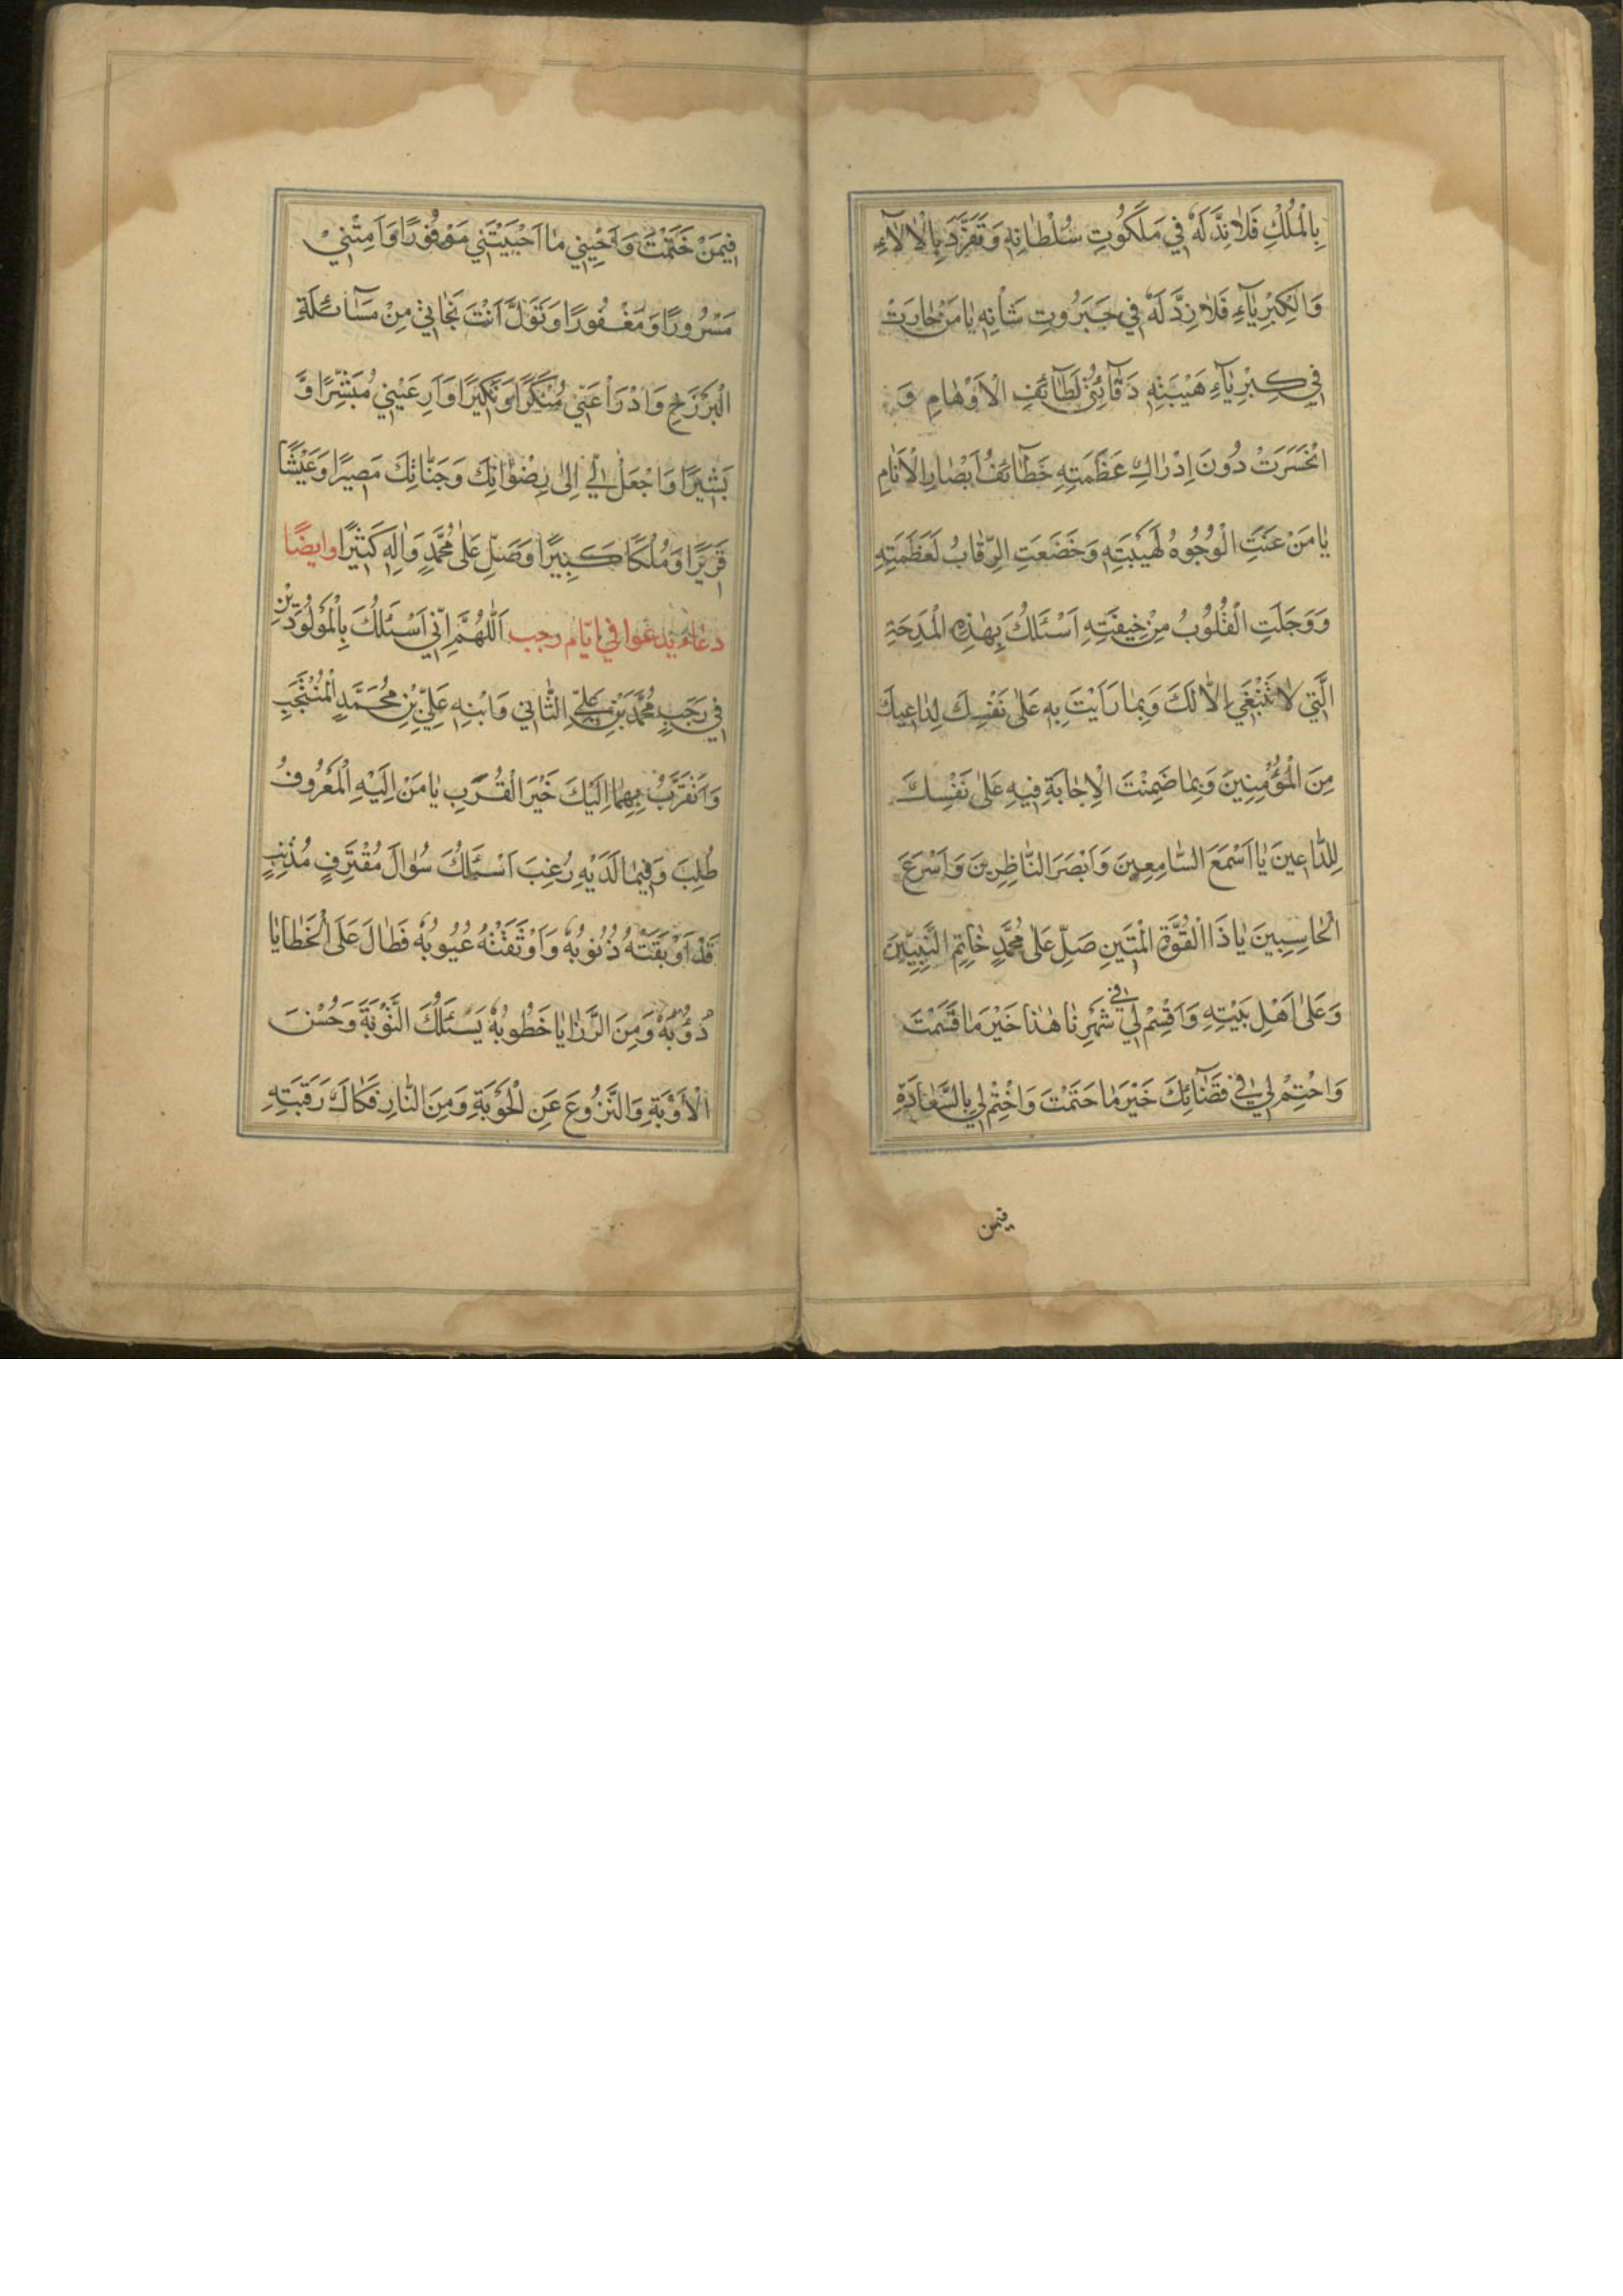 بِالْمُلْكِ فَلَا نِدَّ لَهُ فِي مَلَكُوتِ سُلْطَانِهِ وَتَفَرَّدَ بِالْاٰلَآءِ
وَالْكِبْرِيَآءِ فَلَا ضِدَّ لَهُ فِي جَبَرُوتِ شَأْنِهِ يَا مَنْ حَارَتْ
فِي كِبْرِيَآءِ هَيْبَتِهِ دَقَآئِقُ لَطَآئِفِ الْاَوْهَامِ وَ
انْحَسَرَتْ دُونَ اِدْرَاكِ عَظَمَتِهِ خَطَآئِفُ اَبْصَارِ الْاَنَامِ
يَا مَنْ عَنَتِ الْوُجُوهُ لِهَيْبَتِهِ وَخَضَعَتِ الرِّقَابُ لِعَظَمَتِهِ
وَوَجَلَتِ الْقُلُوبُ مِنْ خِيفَتِهِ اَسْئَلُكَ بِهٰذِهِ الْمِدْحَةِ
الَّتِي لَا تَنْبَغِي اِلَّا لَكَ وَبِمَا رَاَيْتَ بِهِ عَلٰى نَفْسِكَ لِدَاعِيكَ
مِنَ الْمُؤْمِنِينَ وَبِمَا ضَمِنْتَ الْاِجَابَةِ فِيهِ عَلٰى نَفْسِكَ
لِلدَّاعِينَ يَا اَسْمَعَ السَّامِعِينَ وَاَبْصَرَ النَّاظِرِينَ وَاَسْرَعَ
الْحَاسِبِينَ يَا ذَا الْقُوَّةِ الْمَتِينِ صَلِّ عَلٰى مُحَمَّدٍ خَاتِمِ النَّبِيِّينَ
وَعَلٰى اَهْلِ بَيْتِهِ وَاَقْسِمْ لِي فِي شَهْرِنَا هٰذَا خَيْرَ مَا قَسَمْتَ
وَاحْتِمْ لِي فِي قَضَآئِكَ خَيْرَ مَا حَتَمْتَ وَاخْتِمْ لِي بِالسَّعَادَةِ
فيمن
فِيمَنْ خَتَمْتَ وَاَحْيِنِي مَا اَحْيَيْتَنِي مَوْفُورًا وَاَمِتْنِي
مَسْرُورًا وَمَغْفُورًا وَتَوَلَّ اَنْتَ نَجَاتِي مِنْ مَسْآئَلَةِ
الْبَرْزَخِ وَادْرَأْ عَنِّي مُنْكَرًا وَنَكِيرًا وَاَرِ عَيْنِي مُبَشِّرًا وَ
بَشِيرًا وَاجْعَلْ لِي اِلٰى رِضْوَانِكَ وَجَنَّاتِكَ مَصِيرًا وَعَيْشًا
قَرِيرًا وَمُلْكًا كَبِيرًا وَصَلِّ عَلٰى مُحَمَّدٍ وَاٰلِهِ كَثِيرًا وايضًا
دعاء يدعوا في ايّام رجب اَللّٰهُمَّ اِنِّي اَسْئَلُكَ بِالْمَوْلُودَيْنِ
فِي رَجَبٍ مُحَمَّدِ بْنِ عَلِيٍّ الثَّانِي وَابْنِهِ عَلِيِّ بْنِ مُحَمَّدٍ الْمُنْتَجَبِ
وَاَتَقَرَّبُ بِهِمَا اِلَيْكَ خَيْرَ الْقُرَبِ يَا مَنْ اِلَيْهِ الْمَعْرُوفُ
طُلِبَ وَفِيمَا لَدَيْهِ رُغِبَ اَسْئَلُكَ سُؤَالَ مُقْتَرِفٍ مُذْنِبٍ
قَدْ اَوْبَقَتْهُ ذُنُوبُهُ وَاَوْثَقَتْهُ عُيُوبُهُ فَطَالَ عَلَى الْخَطَايَا
دُؤُبُهُ وَمِنَ الرَّزَايَا خَطُوبُهُ يَسْئَلُكَ التَّوْبَةَ وَحُسْنَ
الْاَوْبَةِ وَالنُّزُوعَ عَنِ الْحَوْبَةِ وَمِنَ النَّارِ فَكَاكَ رَقَبَتِهِ